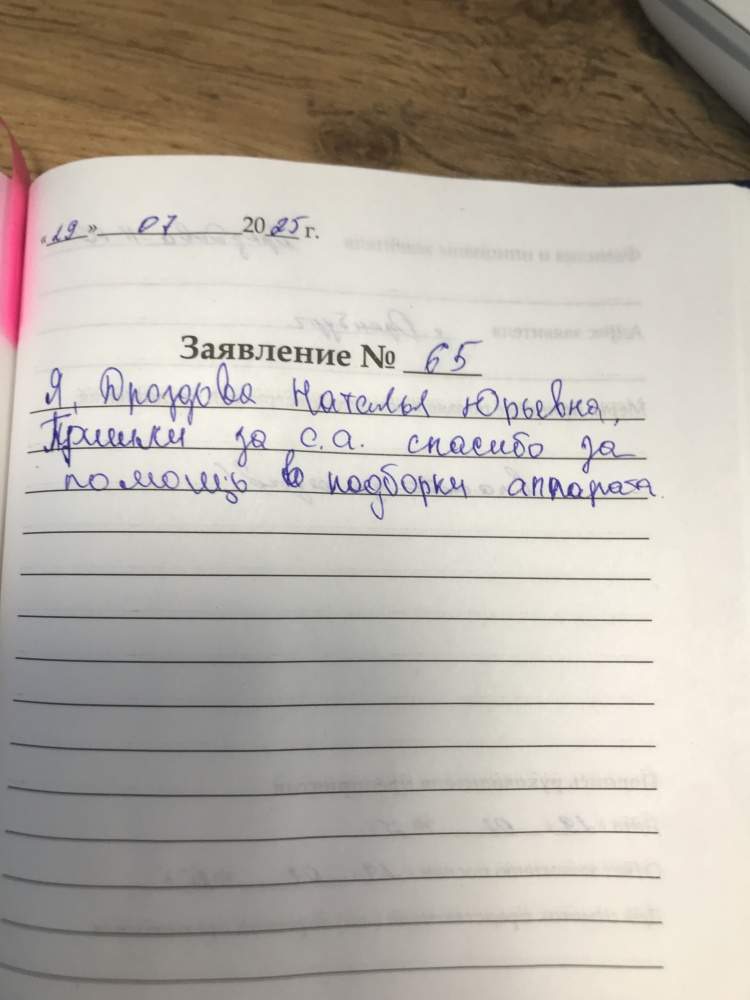 «19» 07 2025 г.
Заявление № 65
Я, Дроздова Наталья Юрьевна,
за с.а. спасибо за
помощь в подборки аппарата.